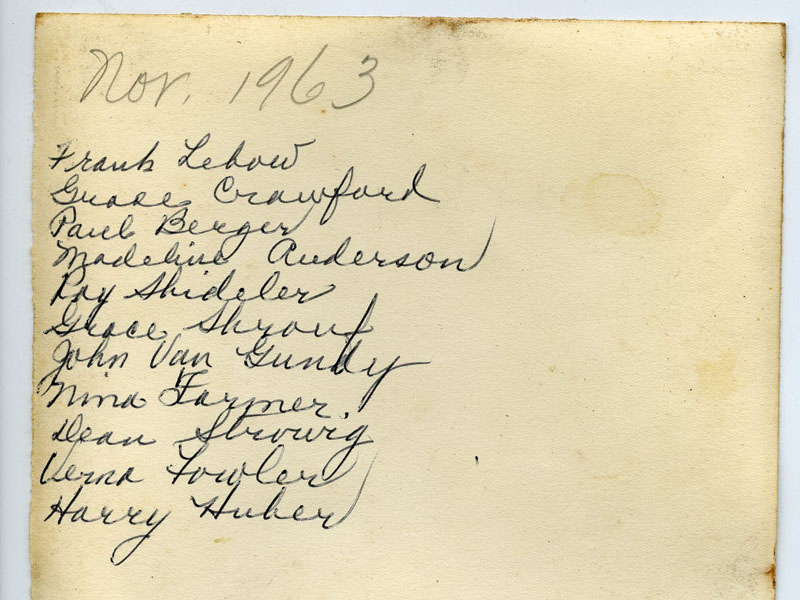 Nov. 1963
Frank Lebow
Grace Crawford
Paul Berger
Madeline Anderson
Ray Shideler
Grace Shrout
John Van Gundy
Nina Farmer.
Dean Strowig
Verna Fowler
Harry Huber